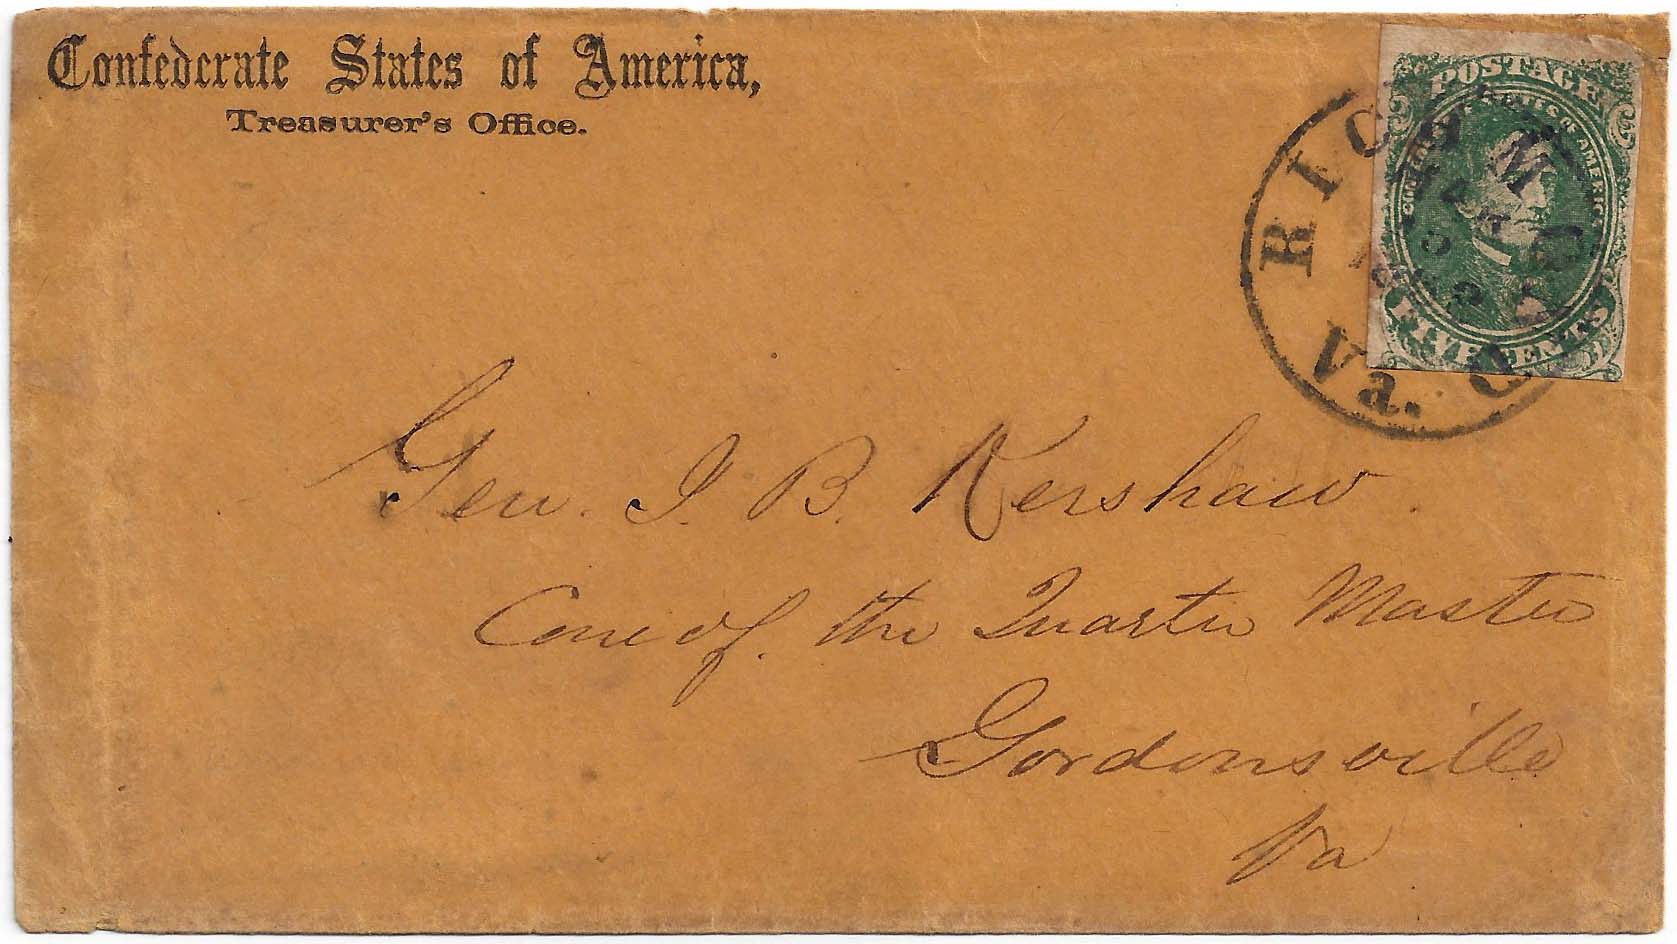 Confederate States of America,
Treasurer's Office.
POSTAGE
CONFEDERATE STATES OF AMERICA
FIVE CENTS
RICHMOND Va.
MAR
1862
Gen. J. B. Kershaw.
Care of. the Quarter Master
Gordonsville
Va